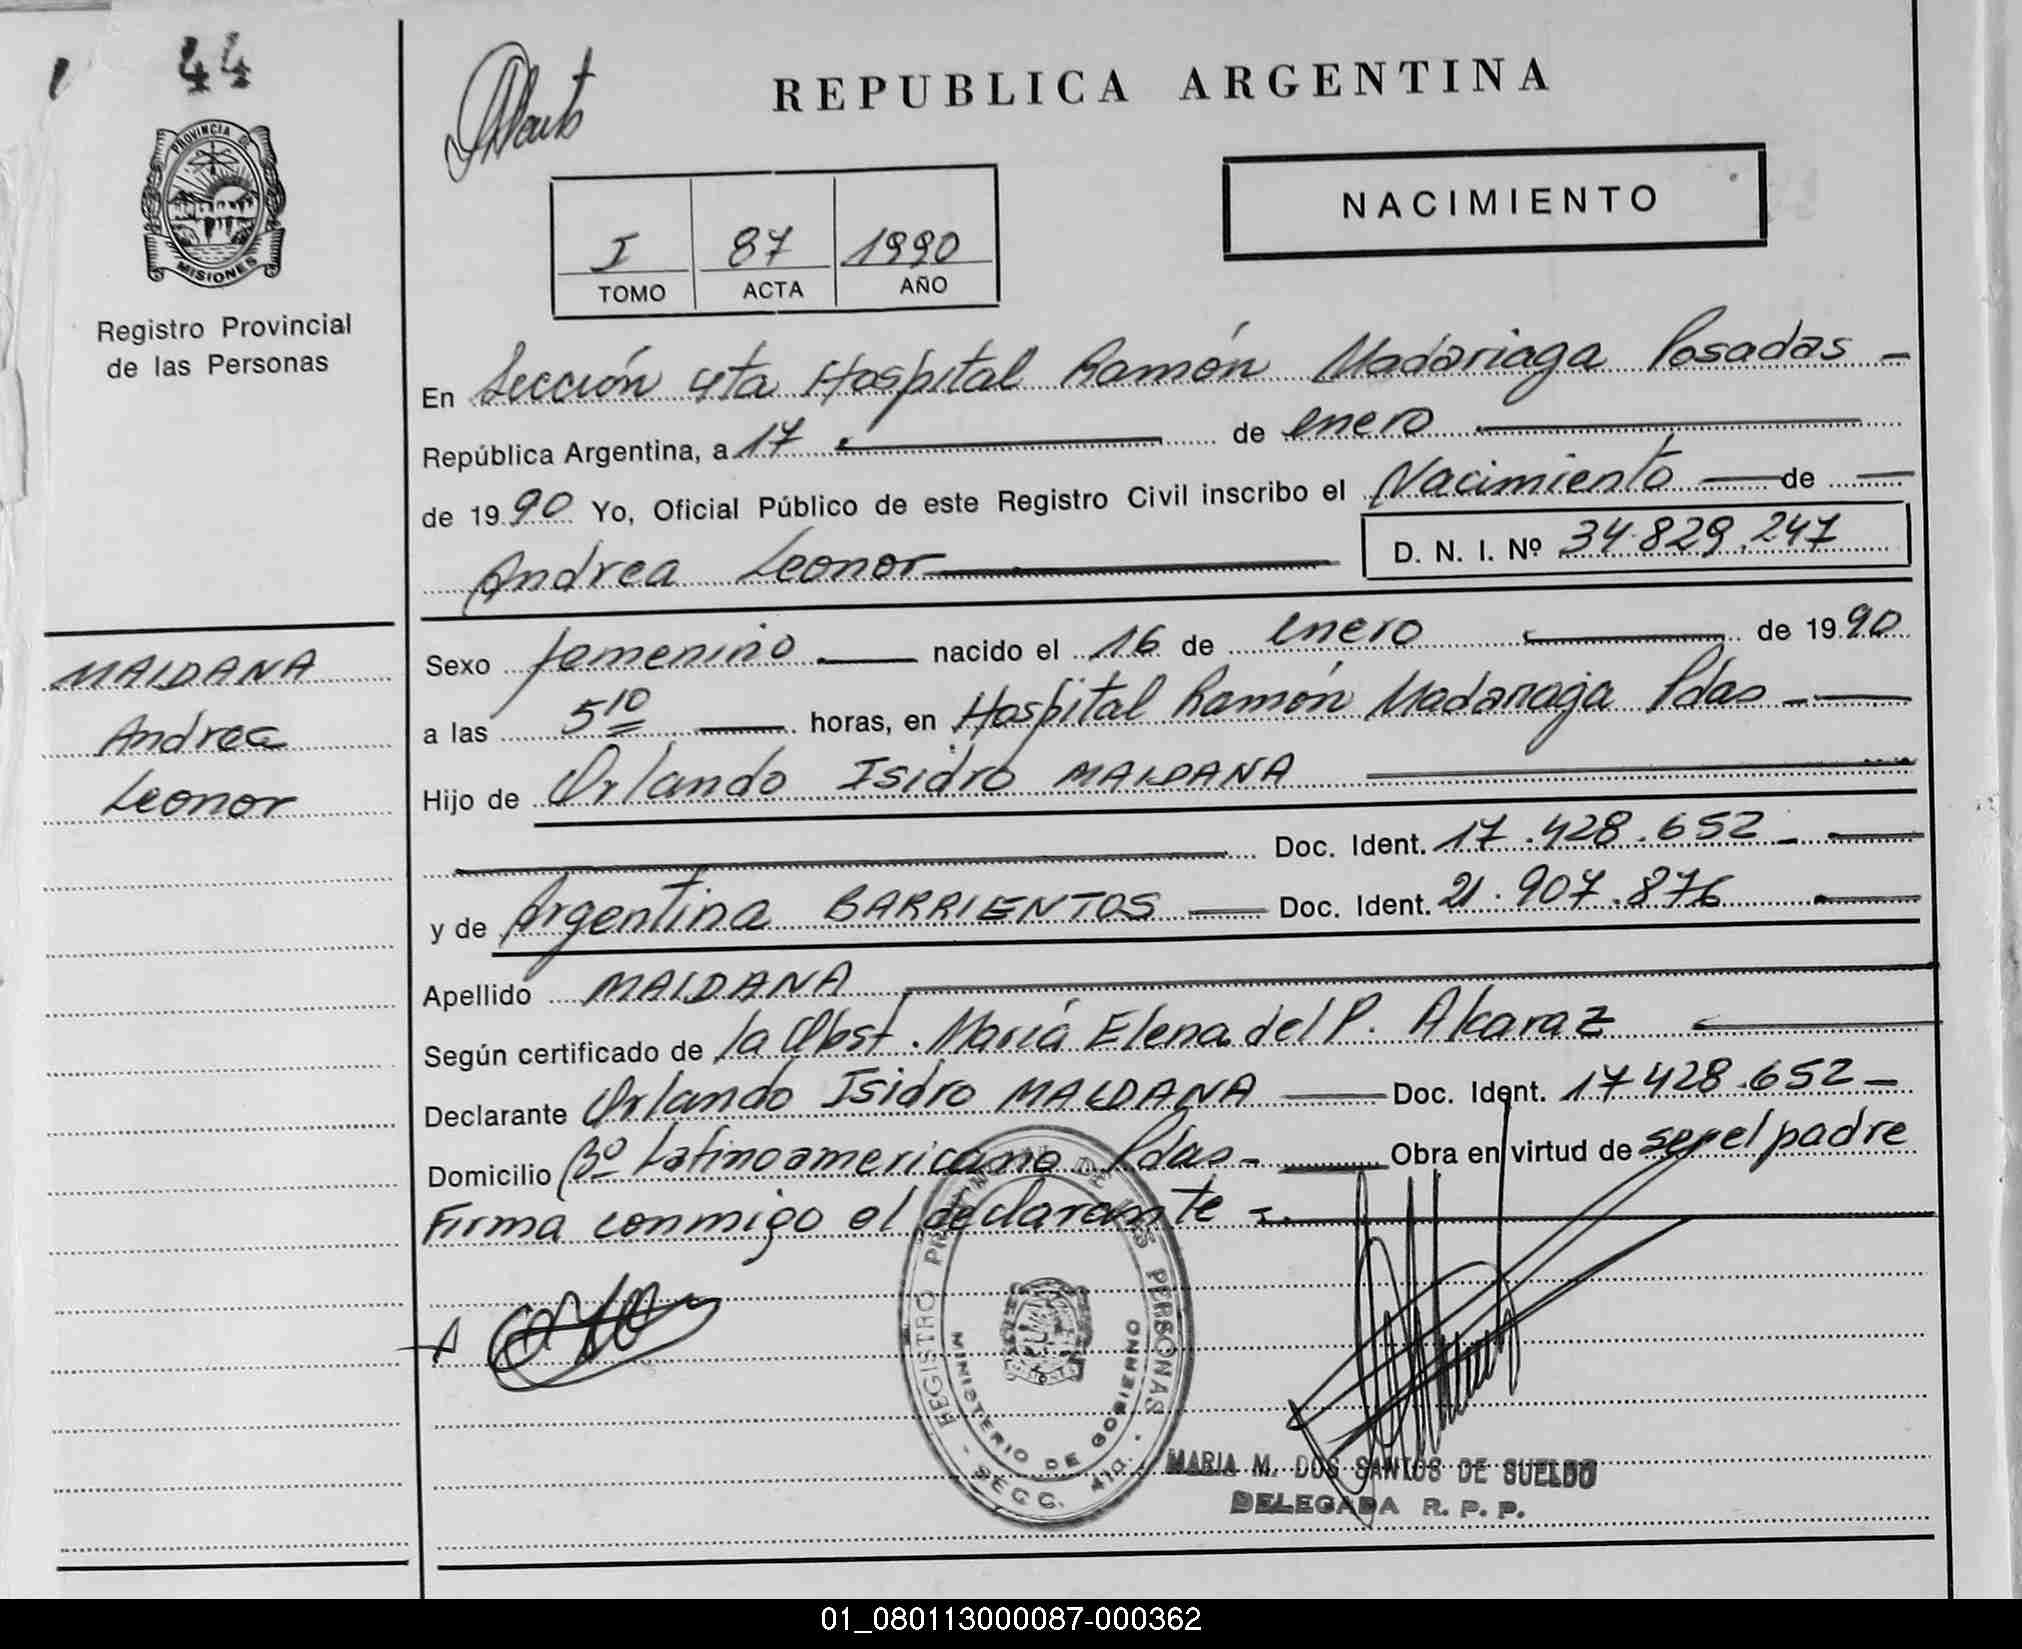 44
PROVINCIA DE
MISIONES
Registro Provincial
de las Personas
REPUBLICA ARGENTINA
NACIMIENTO
I 87 1990
TOMO ACTA AÑO
En Sección 4ta Hospital Ramón Madariaga Posadas -
República Argentina, a 17 de enero
de 1990 Yo, Oficial Público de este Registro Civil inscribo el Nacimiento de
Andrea Leonor
D. N. I. Nº 34.829.247
MALDANA
Andrea
Leonor
Sexo femenino nacido el 16 de enero de 1990
a las 5 10 horas, en Hospital Ramón Madariaga Pdas -
Hijo de Orlando Isidro MALDANA
Doc. Ident. 17.428.652 -
y de Argentina BARRIENTOS Doc. Ident. 21.907.876
Apellido MALDANA
Según certificado de la Obst. María Elena del P. Alcaraz
Declarante Orlando Isidro MALDANA Doc. Ident. 17428.652 -
Domicilio Bº Latinoamericano Pdas - Obra en virtud de ser el padre
Firma conmigo el declarante -.
REGISTRO PROVINCIAL DE LAS PERSONAS
MINISTERIO DE GOBIERNO
- SECC. 4ta. -
MARIA M. DOS SANTOS DE SUELDO
DELEGADA R. P. P.
01_080113000087-000362